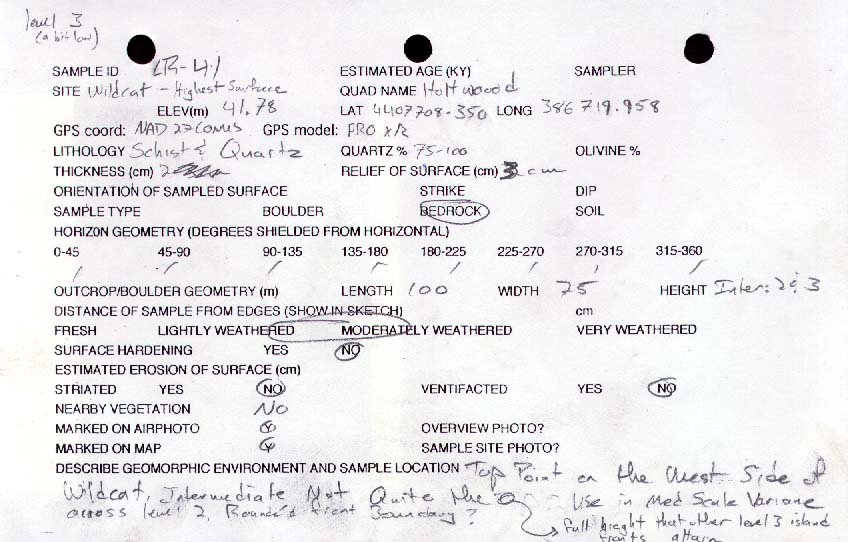 level 3
(a bit low)
SAMPLE ID LR-41 ESTIMATED AGE (KY) SAMPLER
SITE Wildcat - Highest Surface QUAD NAME Holtwood
ELEV(m) 41.78 LAT 4407708.350 LONG 386719.958
GPS coord: NAD 27 CONUS GPS model: PRO XR
LITHOLOGY Schist & Quartz QUARTZ % 75-100 OLIVINE %
THICKNESS (cm) 2 RELIEF OF SURFACE (cm) 3 cm
ORIENTATION OF SAMPLED SURFACE STRIKE DIP
SAMPLE TYPE BOULDER BEDROCK SOIL
HORIZON GEOMETRY (DEGREES SHIELDED FROM HORIZONTAL)
0-45 45-90 90-135 135-180 180-225 225-270 270-315 315-360
OUTCROP/BOULDER GEOMETRY (m) LENGTH 100 WIDTH 75 HEIGHT Inter: 2 & 3
DISTANCE OF SAMPLE FROM EDGES (SHOW IN SKETCH) cm
FRESH LIGHTLY WEATHERED MODERATELY WEATHERED VERY WEATHERED
SURFACE HARDENING YES NO
ESTIMATED EROSION OF SURFACE (cm)
STRIATED YES NO VENTIFACTED YES NO
NEARBY VEGETATION No
MARKED ON AIRPHOTO Y OVERVIEW PHOTO?
MARKED ON MAP Y SAMPLE SITE PHOTO?
DESCRIBE GEOMORPHIC ENVIRONMENT AND SAMPLE LOCATION Top Point on the West Side of
Wildcat, Intermediate Not Quite the Use in Med Scale Variance
across level 2, Round'd front boundary?
full height that other level 3 island
fronts attain